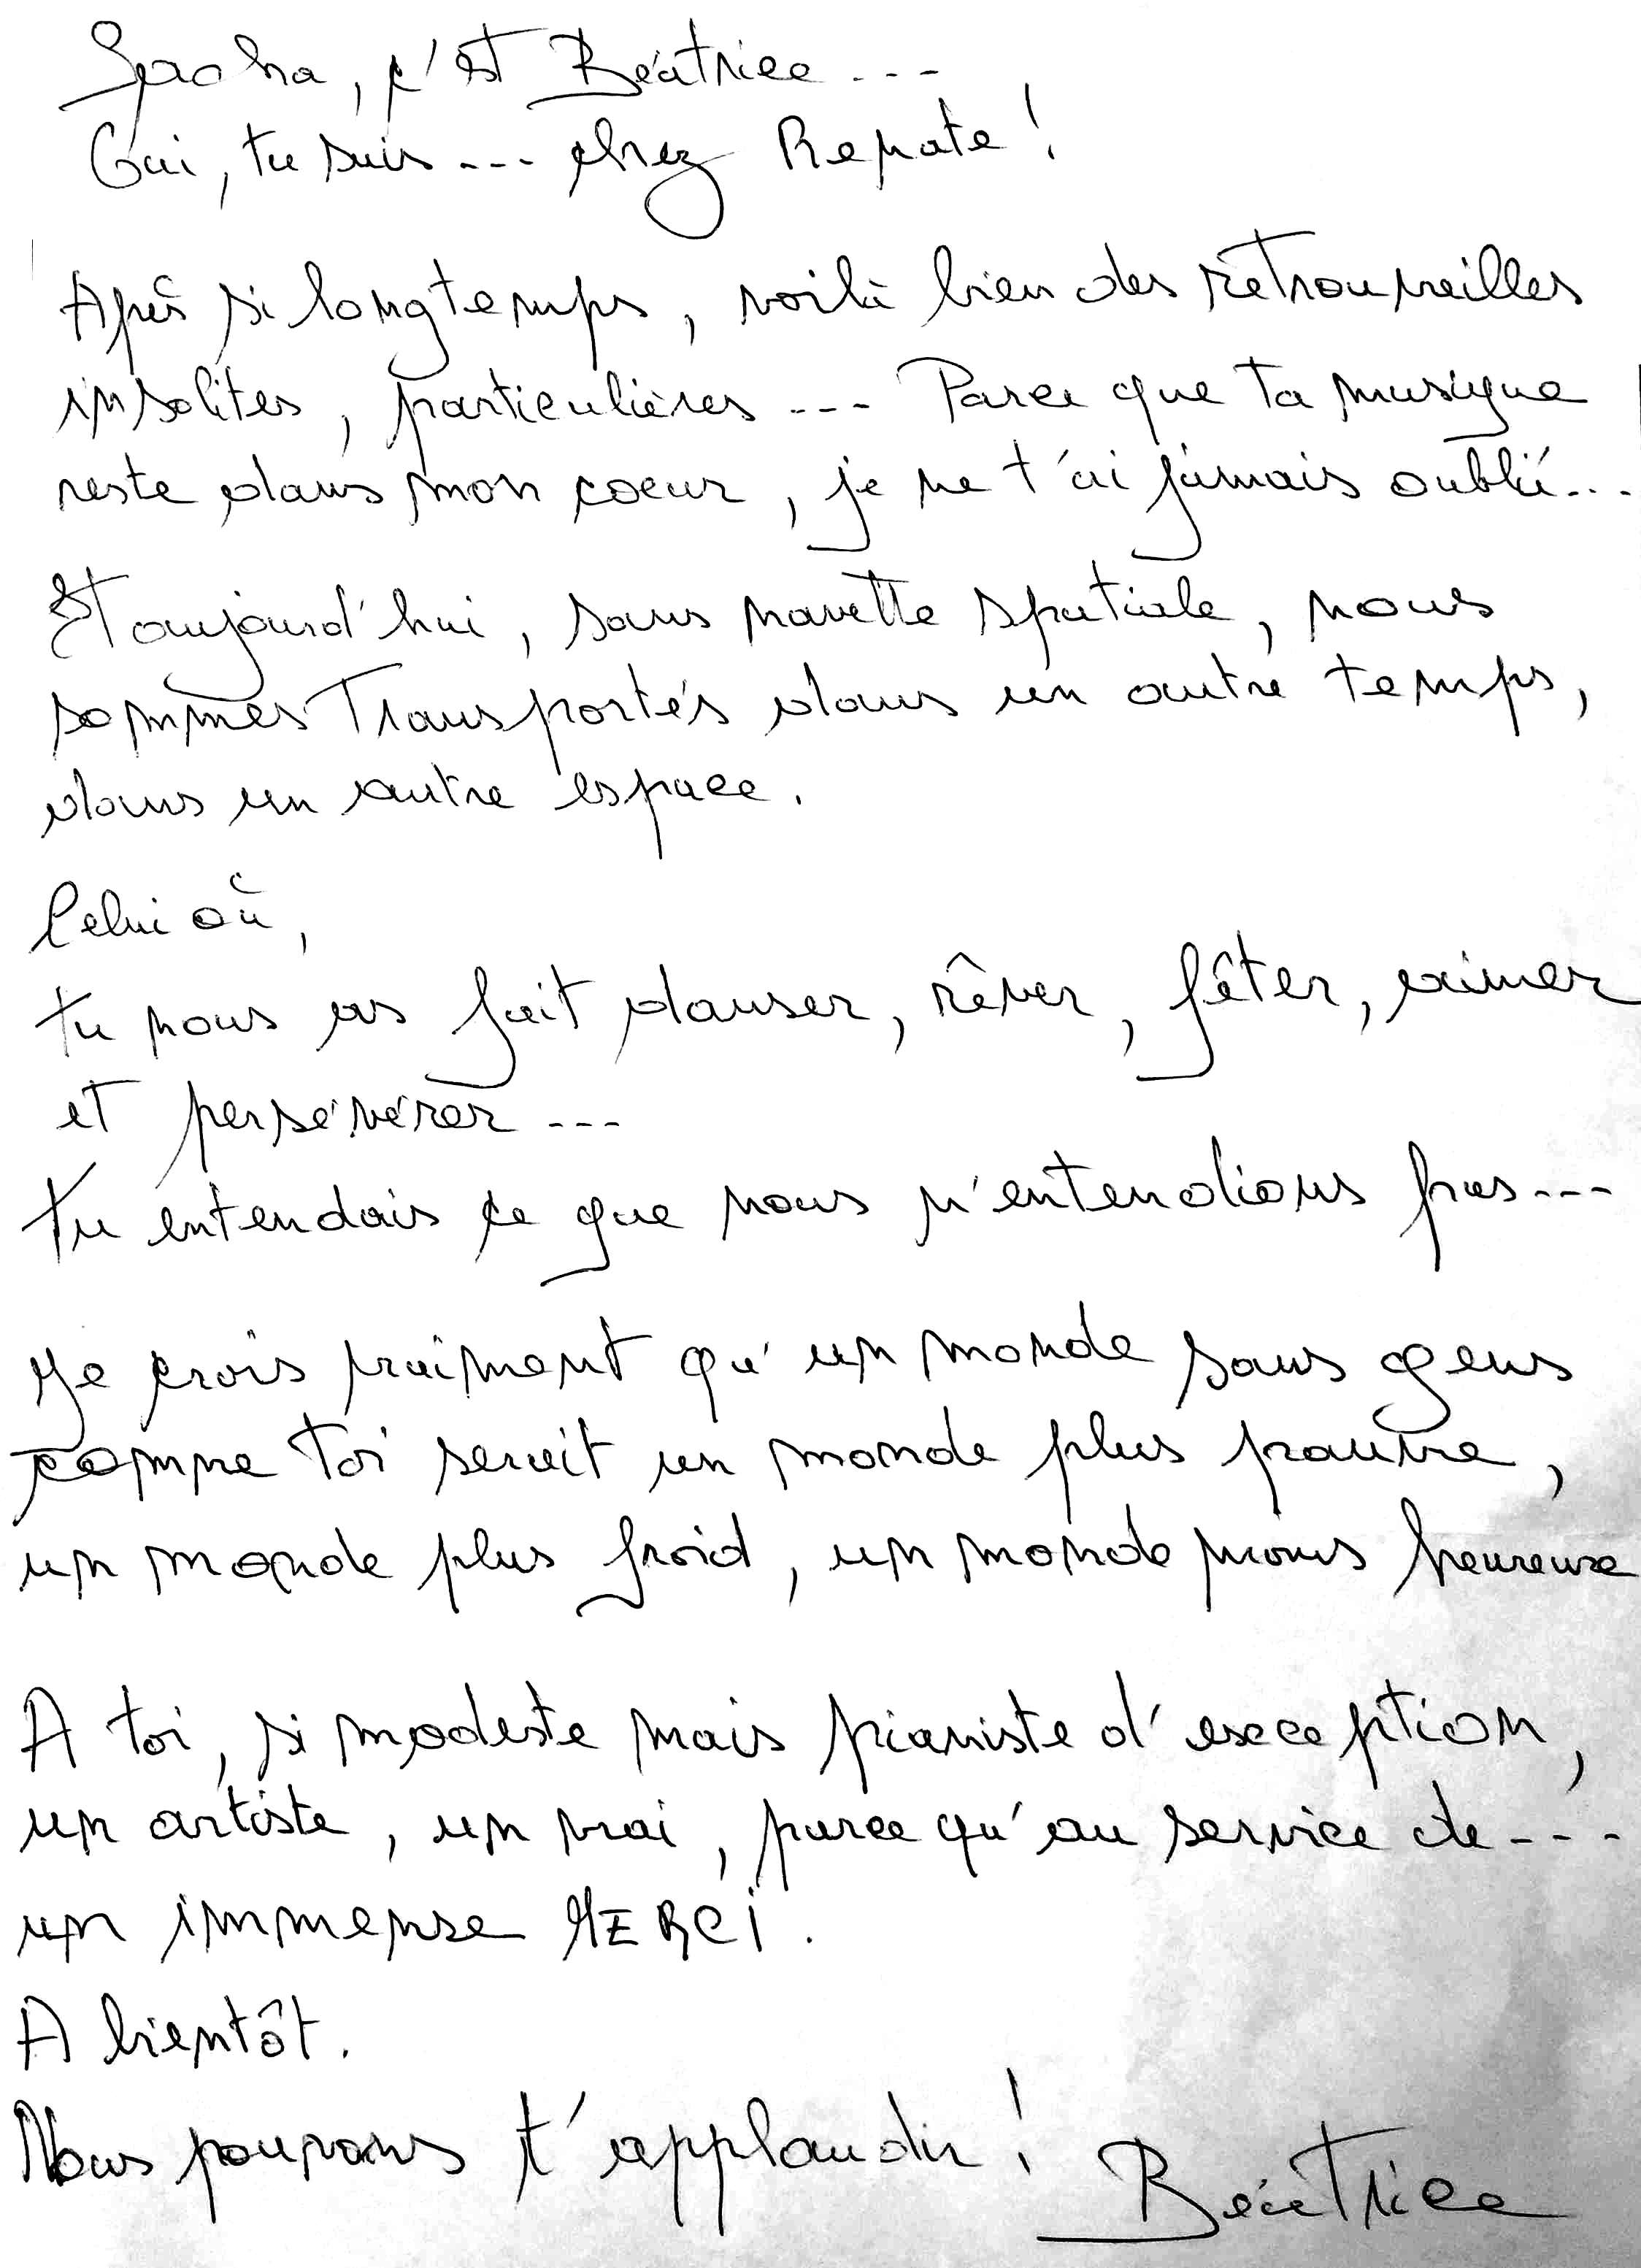 Sacha, c'est Béatrice...
Oui, tu sais... chez Renate !
Après si longtemps, voilà bien des retrouvailles
insolites, particulières... Parce que ta musique
reste dans mon coeur, je ne t'ai jamais oublié...
Et aujourd'hui, sans navette spatiale, nous
sommes transportés dans un autre temps,
dans un autre espace.
Celui où,
tu nous as fait danser, rêver, fêter, aimer
et persévérer...
Tu entendais ce que nous n'entendions pas...
Je crois vraiment qu'un monde sans gens
comme toi serait un monde plus pauvre,
un monde plus froid, un monde moins heureux
A toi, si modeste mais pianiste d'exception,
un artiste, un vrai, parce qu'au service de...
un immense MERCI.
A bientôt.
Nous pouvons t'applaudir !
Béatrice